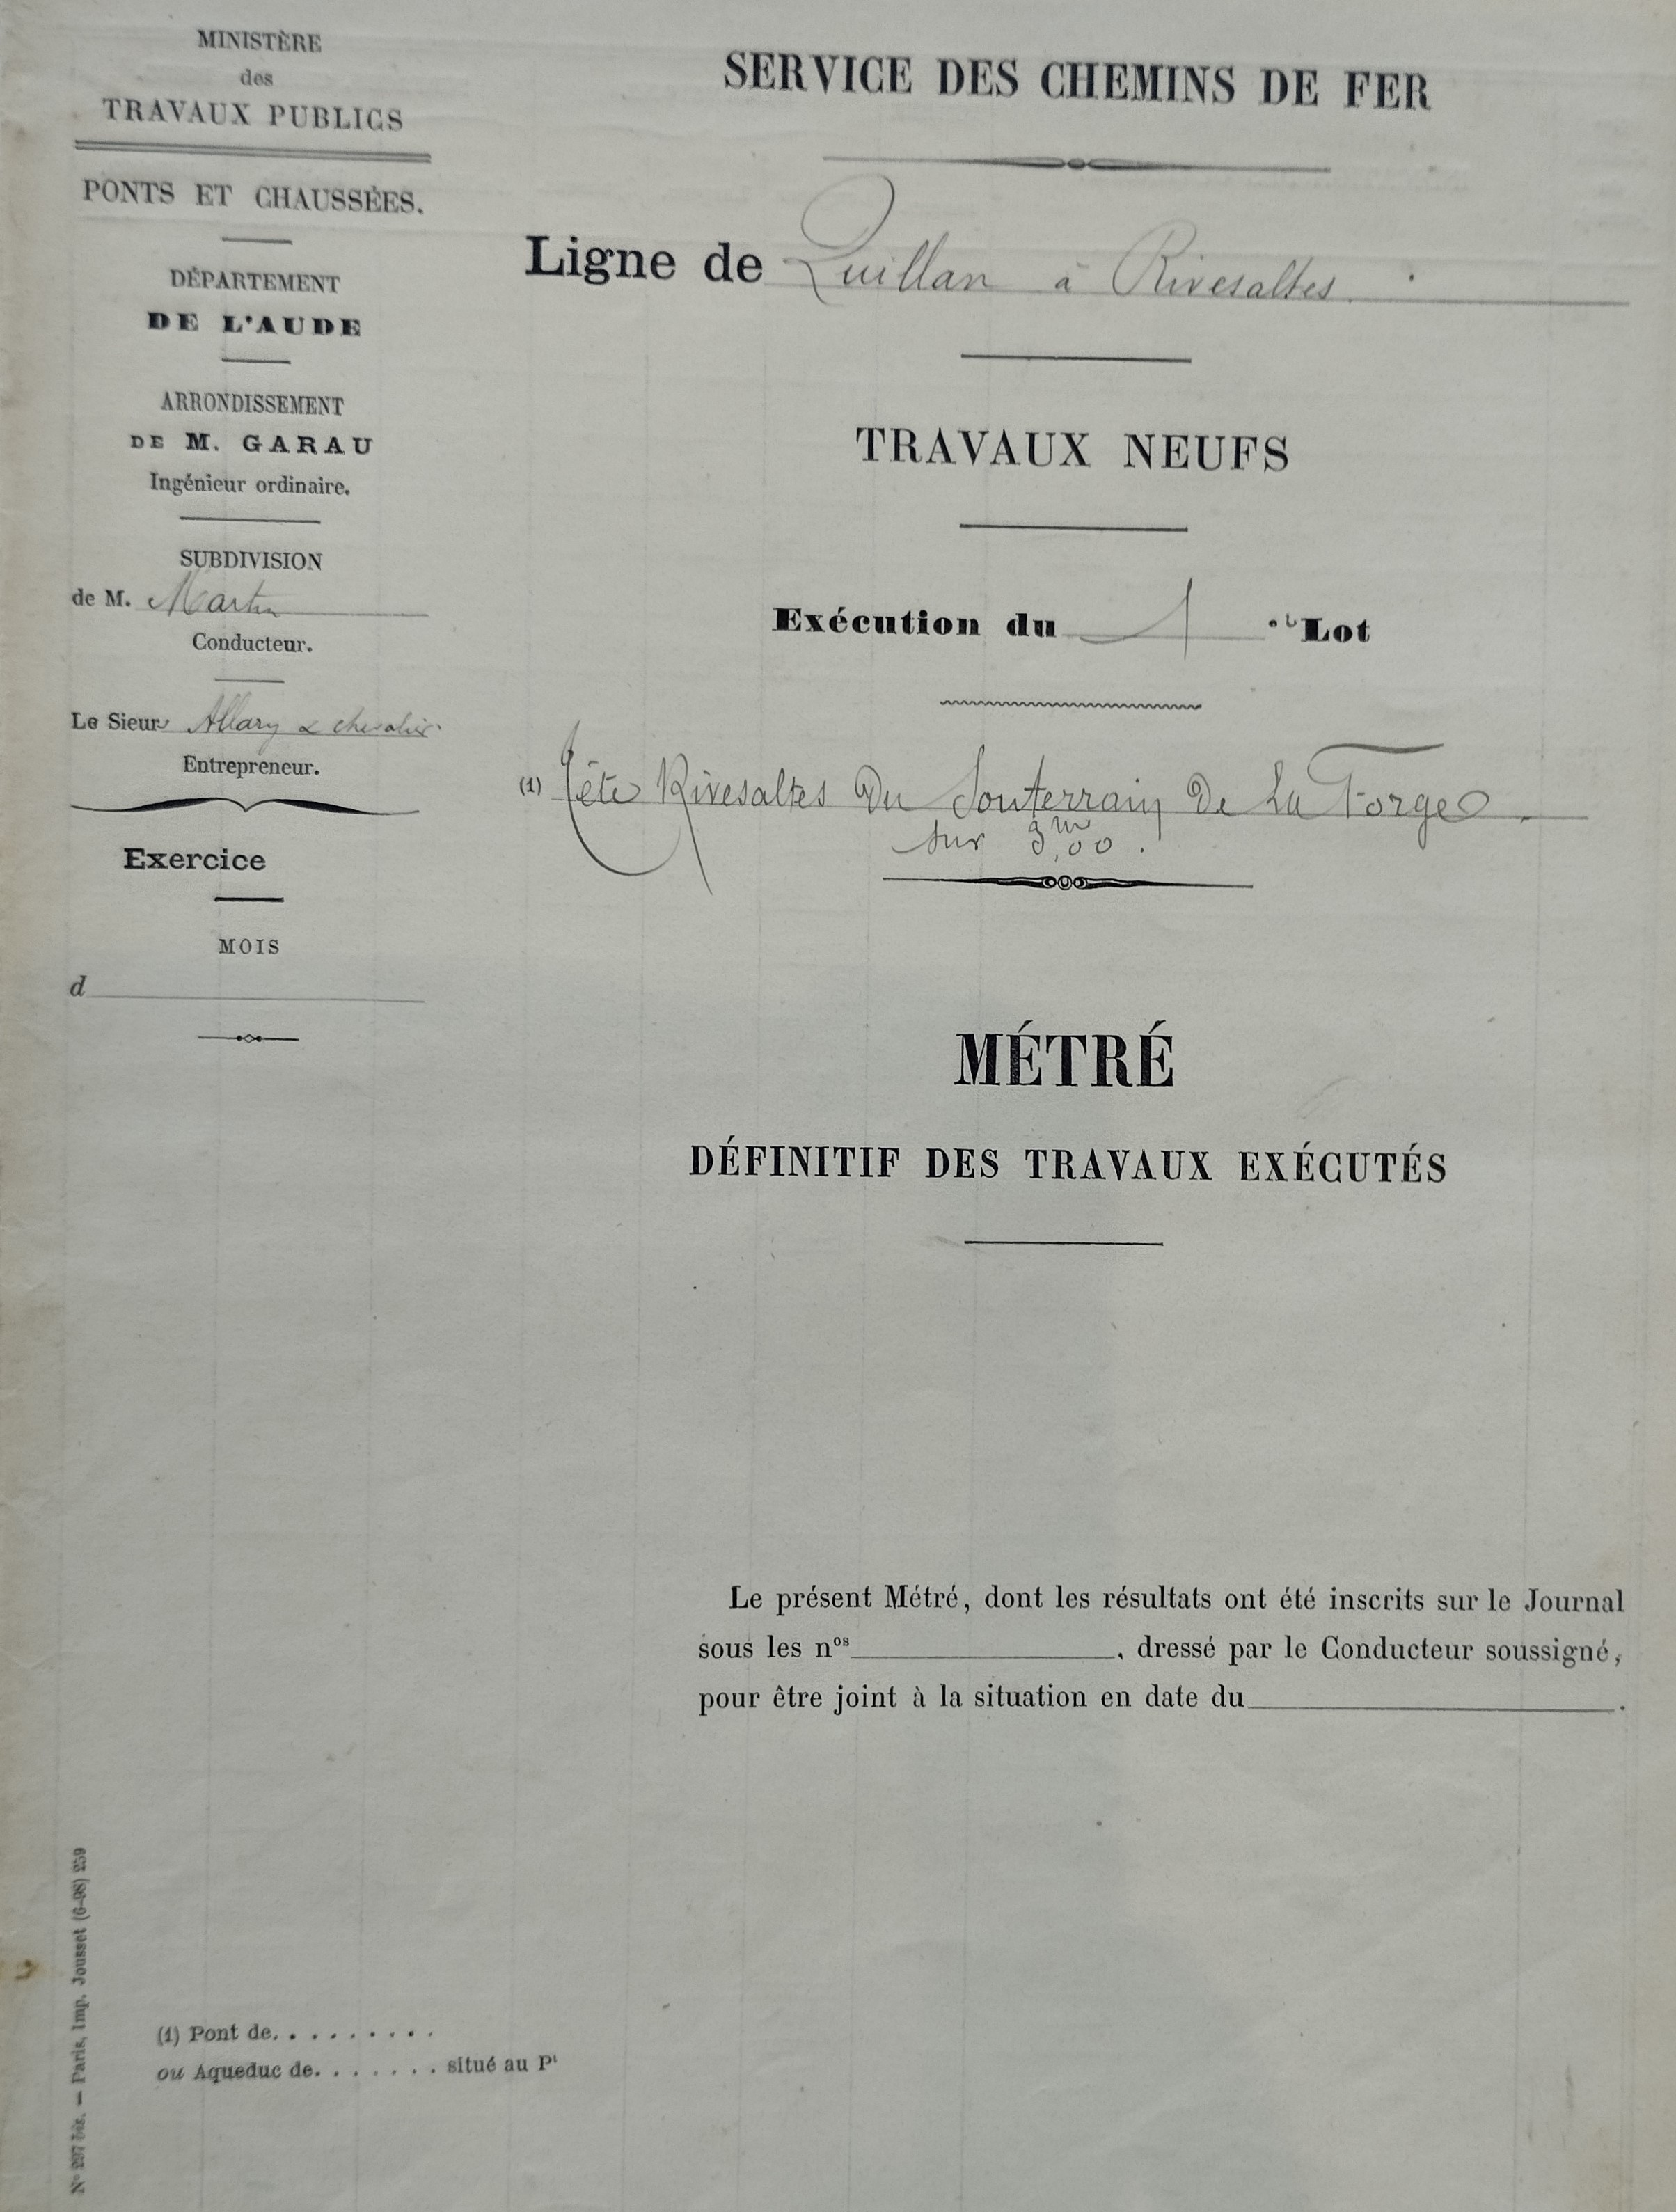 MINISTÈRE
des
TRAVAUX PUBLICS
PONTS ET CHAUSSÉES.
DÉPARTEMENT
DE L'AUDE
ARRONDISSEMENT
DE M. GARAU
Ingénieur ordinaire.
SUBDIVISION
de M. Martin
Conducteur.
Le Sieur Allary & chevalier
Entrepreneur.
Exercice
MOIS
d
SERVICE DES CHEMINS DE FER
Ligne de Quillan à Rivesaltes.
TRAVAUX NEUFS
Exécution du 1 Lot
(1) Tête Rivesaltes Du Souterrain De La Forge.
sur 3,00 m.
MÉTRÉ
DÉFINITIF DES TRAVAUX EXÉCUTÉS
Le présent Métré, dont les résultats ont été inscrits sur le Journal
sous les nos , dressé par le Conducteur soussigné,
pour être joint à la situation en date du .
(1) Pont de. . . . . . . . . .
ou Aqueduc de. . . . . . . . situé au Pt
N° 297 bis. — Paris, Imp. Jousset (6-98) 259